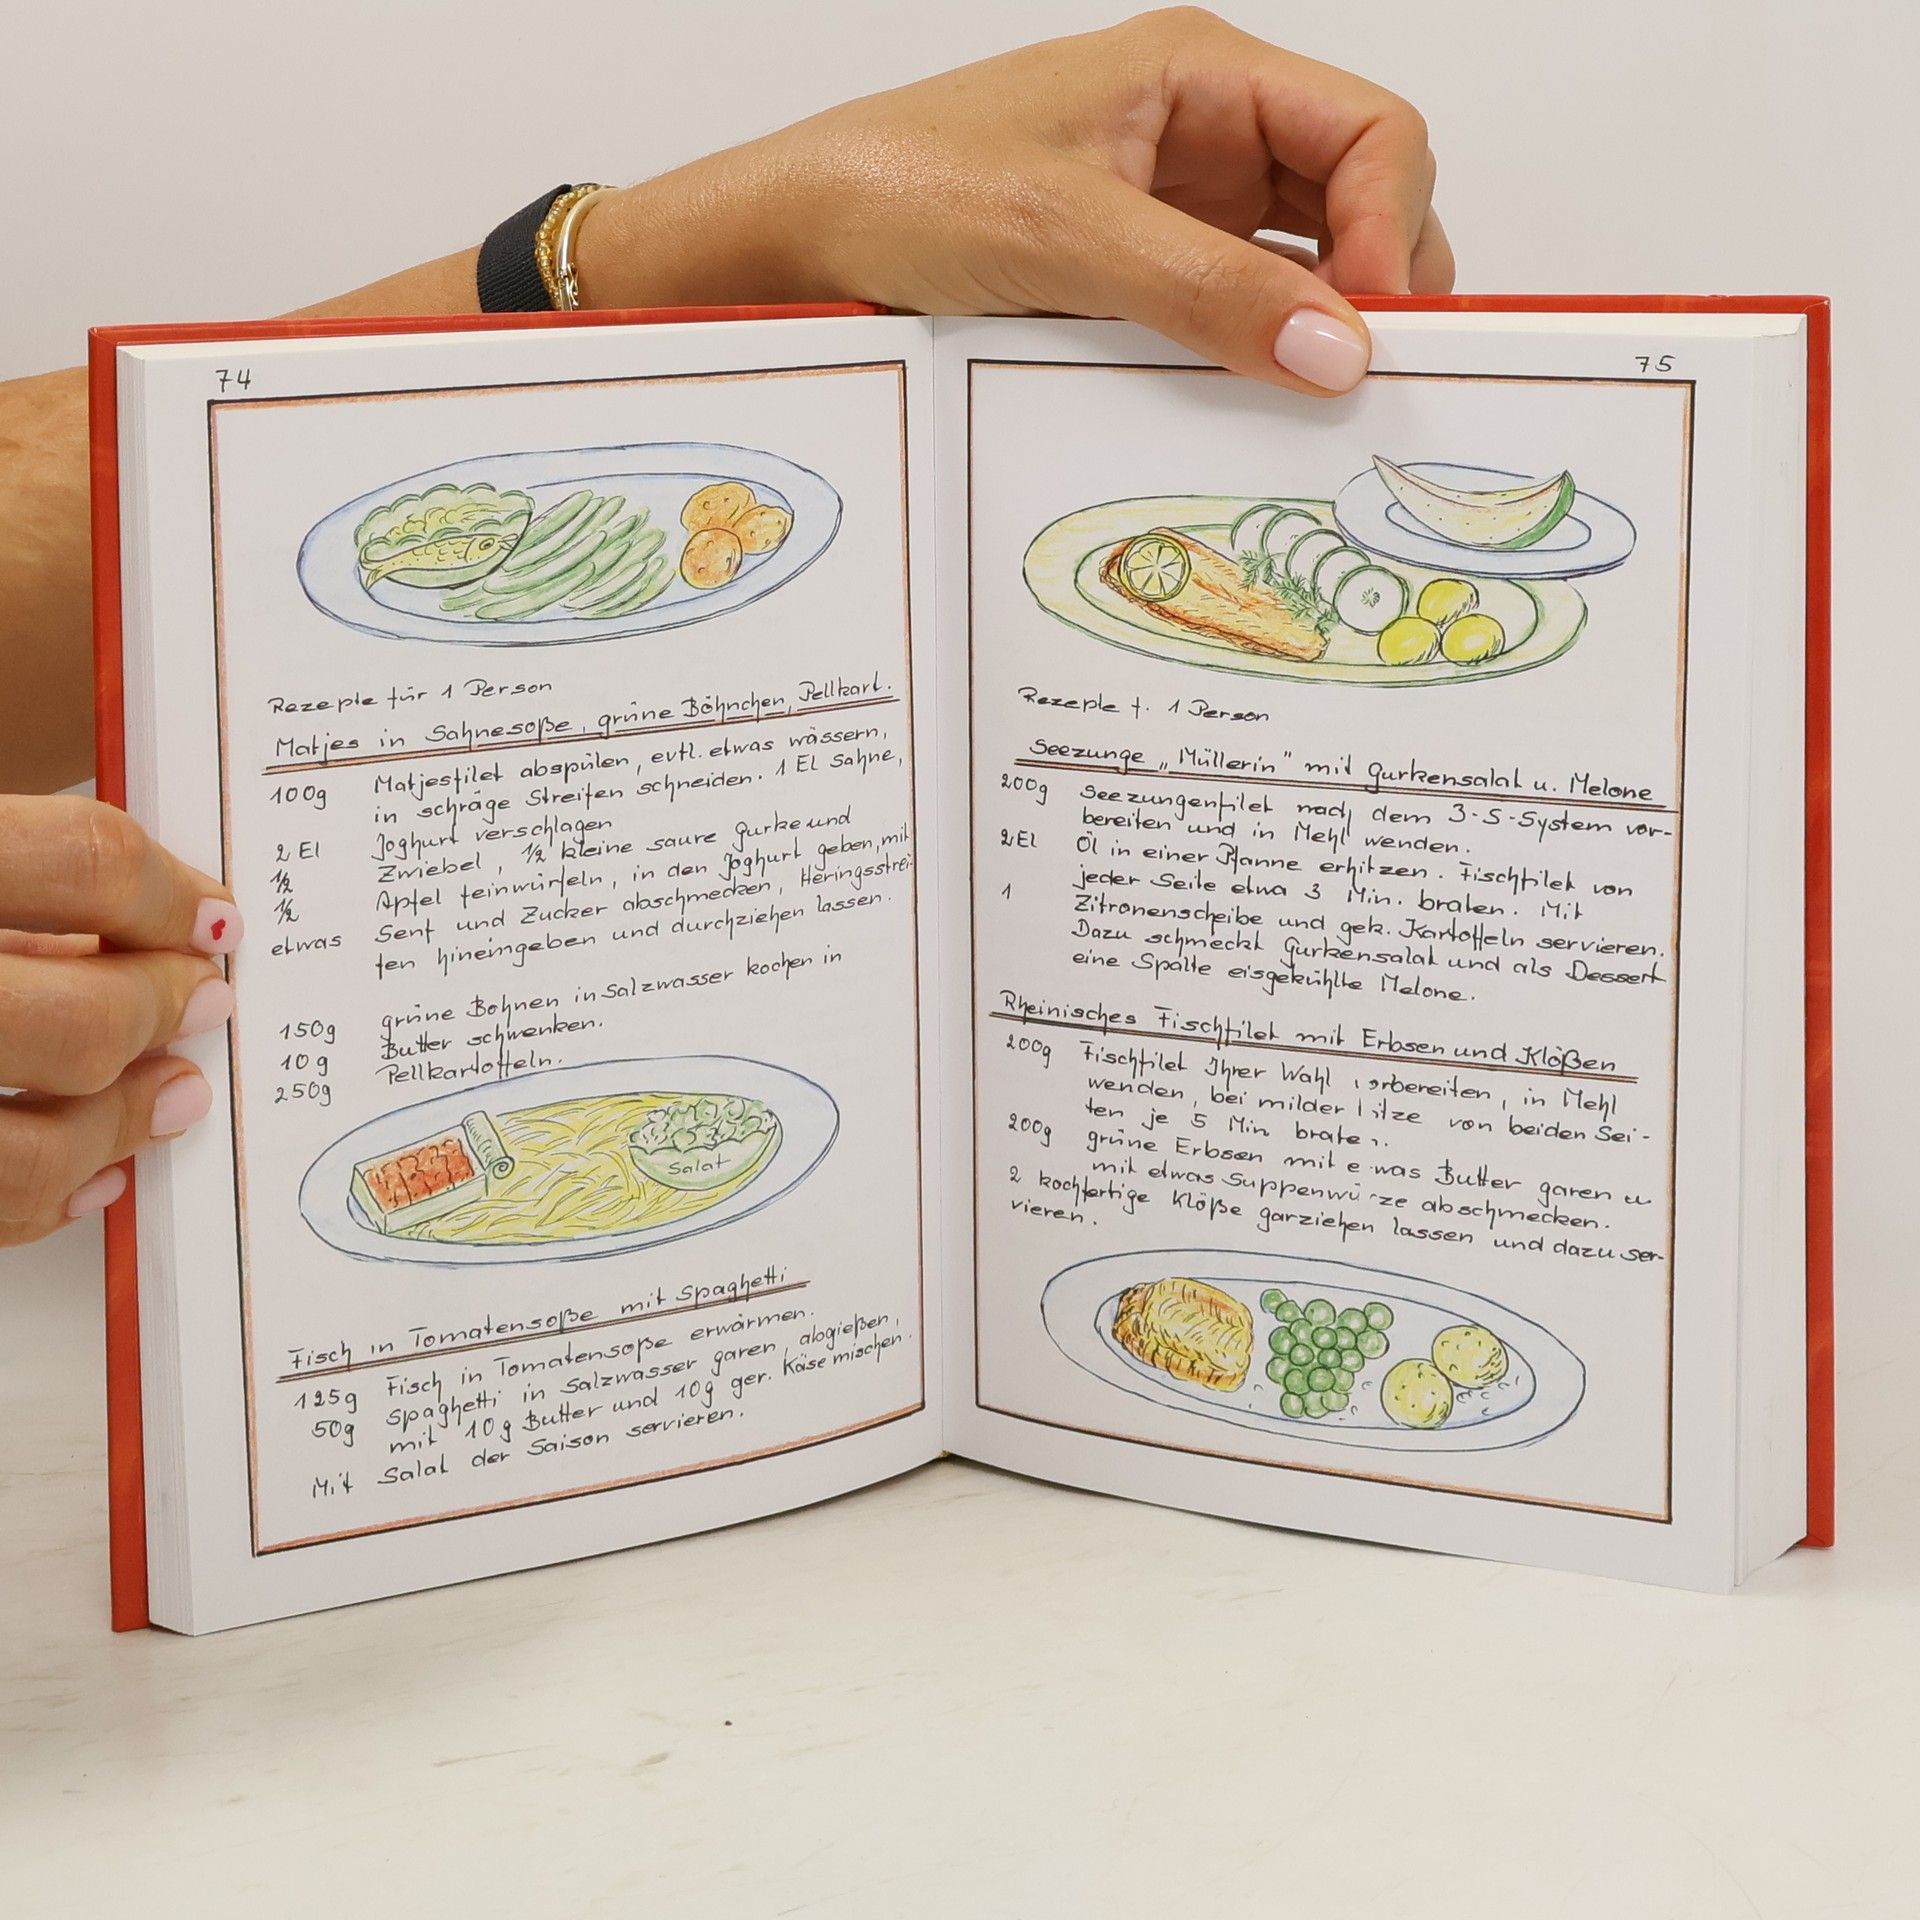 74
Rezepte für 1 Person
Matjes in Sahnesoße, grüne Böhnchen, Pellkart.
100g Matjesfilet abspülen, evtl. etwas wässern,
in schräge Streifen schneiden. 1 El Sahne,
2 El Joghurt verschlagen
1/2 Zwiebel, 1/2 kleine saure Gurke und
1/2 Apfel feinwürfeln, in den Joghurt geben, mit
etwas Senf und Zucker abschmecken, Heringsstrei-
fen hineingeben und durchziehen lassen.
150g grüne Bohnen in Salzwasser kochen in
10g Butter schwenken.
250g Pellkartoffeln.
Salat
Fisch in Tomatensoße mit Spaghetti
125g Fisch in Tomatensoße erwärmen.
50g Spaghetti in Salzwasser garen, abgießen,
mit 10g Butter und 10g ger. Käse mischen.
Mit Salat der Saison servieren.
75
Rezepte f. 1 Person
Seezunge „Müllerin" mit Gurkensalat u. Melone
200g Seezungenfilet nach dem 3-S-System vor-
bereiten und in Mehl wenden.
2 El Öl in einer Pfanne erhitzen. Fischfilet von
jeder Seite etwa 3 Min. braten. Mit
1 Zitronenscheibe und gek. Kartoffeln servieren.
Dazu schmeckt Gurkensalat und als Dessert
eine Spalte eisgekühlte Melone.
Rheinisches Fischfilet mit Erbsen und Klößen
200g Fischfilet Ihrer Wahl vorbereiten, in Mehl
wenden, bei milder Hitze von beiden Sei-
ten je 5 Min braten.
200g grüne Erbsen mit etwas Butter garen u
mit etwas Suppenwürze abschmecken.
2 kochfertige Klöße garziehen lassen und dazu ser-
vieren.